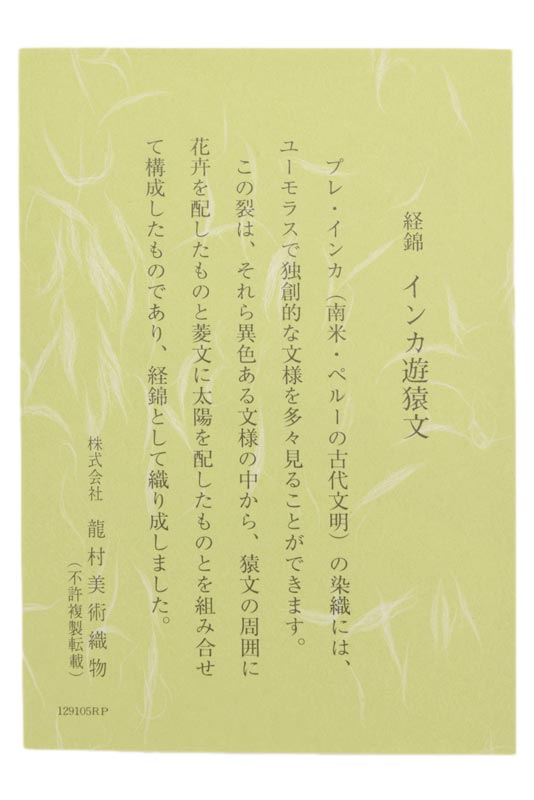 経錦　インカ遊猿文
プレ・インカ（南米・ペルーの古代文明）の染織には、
ユーモラスで独創的な文様を多々見ることができます。
この裂は、それら異色ある文様の中から、猿文の周囲に
花卉を配したものと菱文に太陽を配したものとを組み合せ
て構成したものであり、経錦として織り成しました。
株式会社　龍村美術織物
（不許複製転載）
129105RP